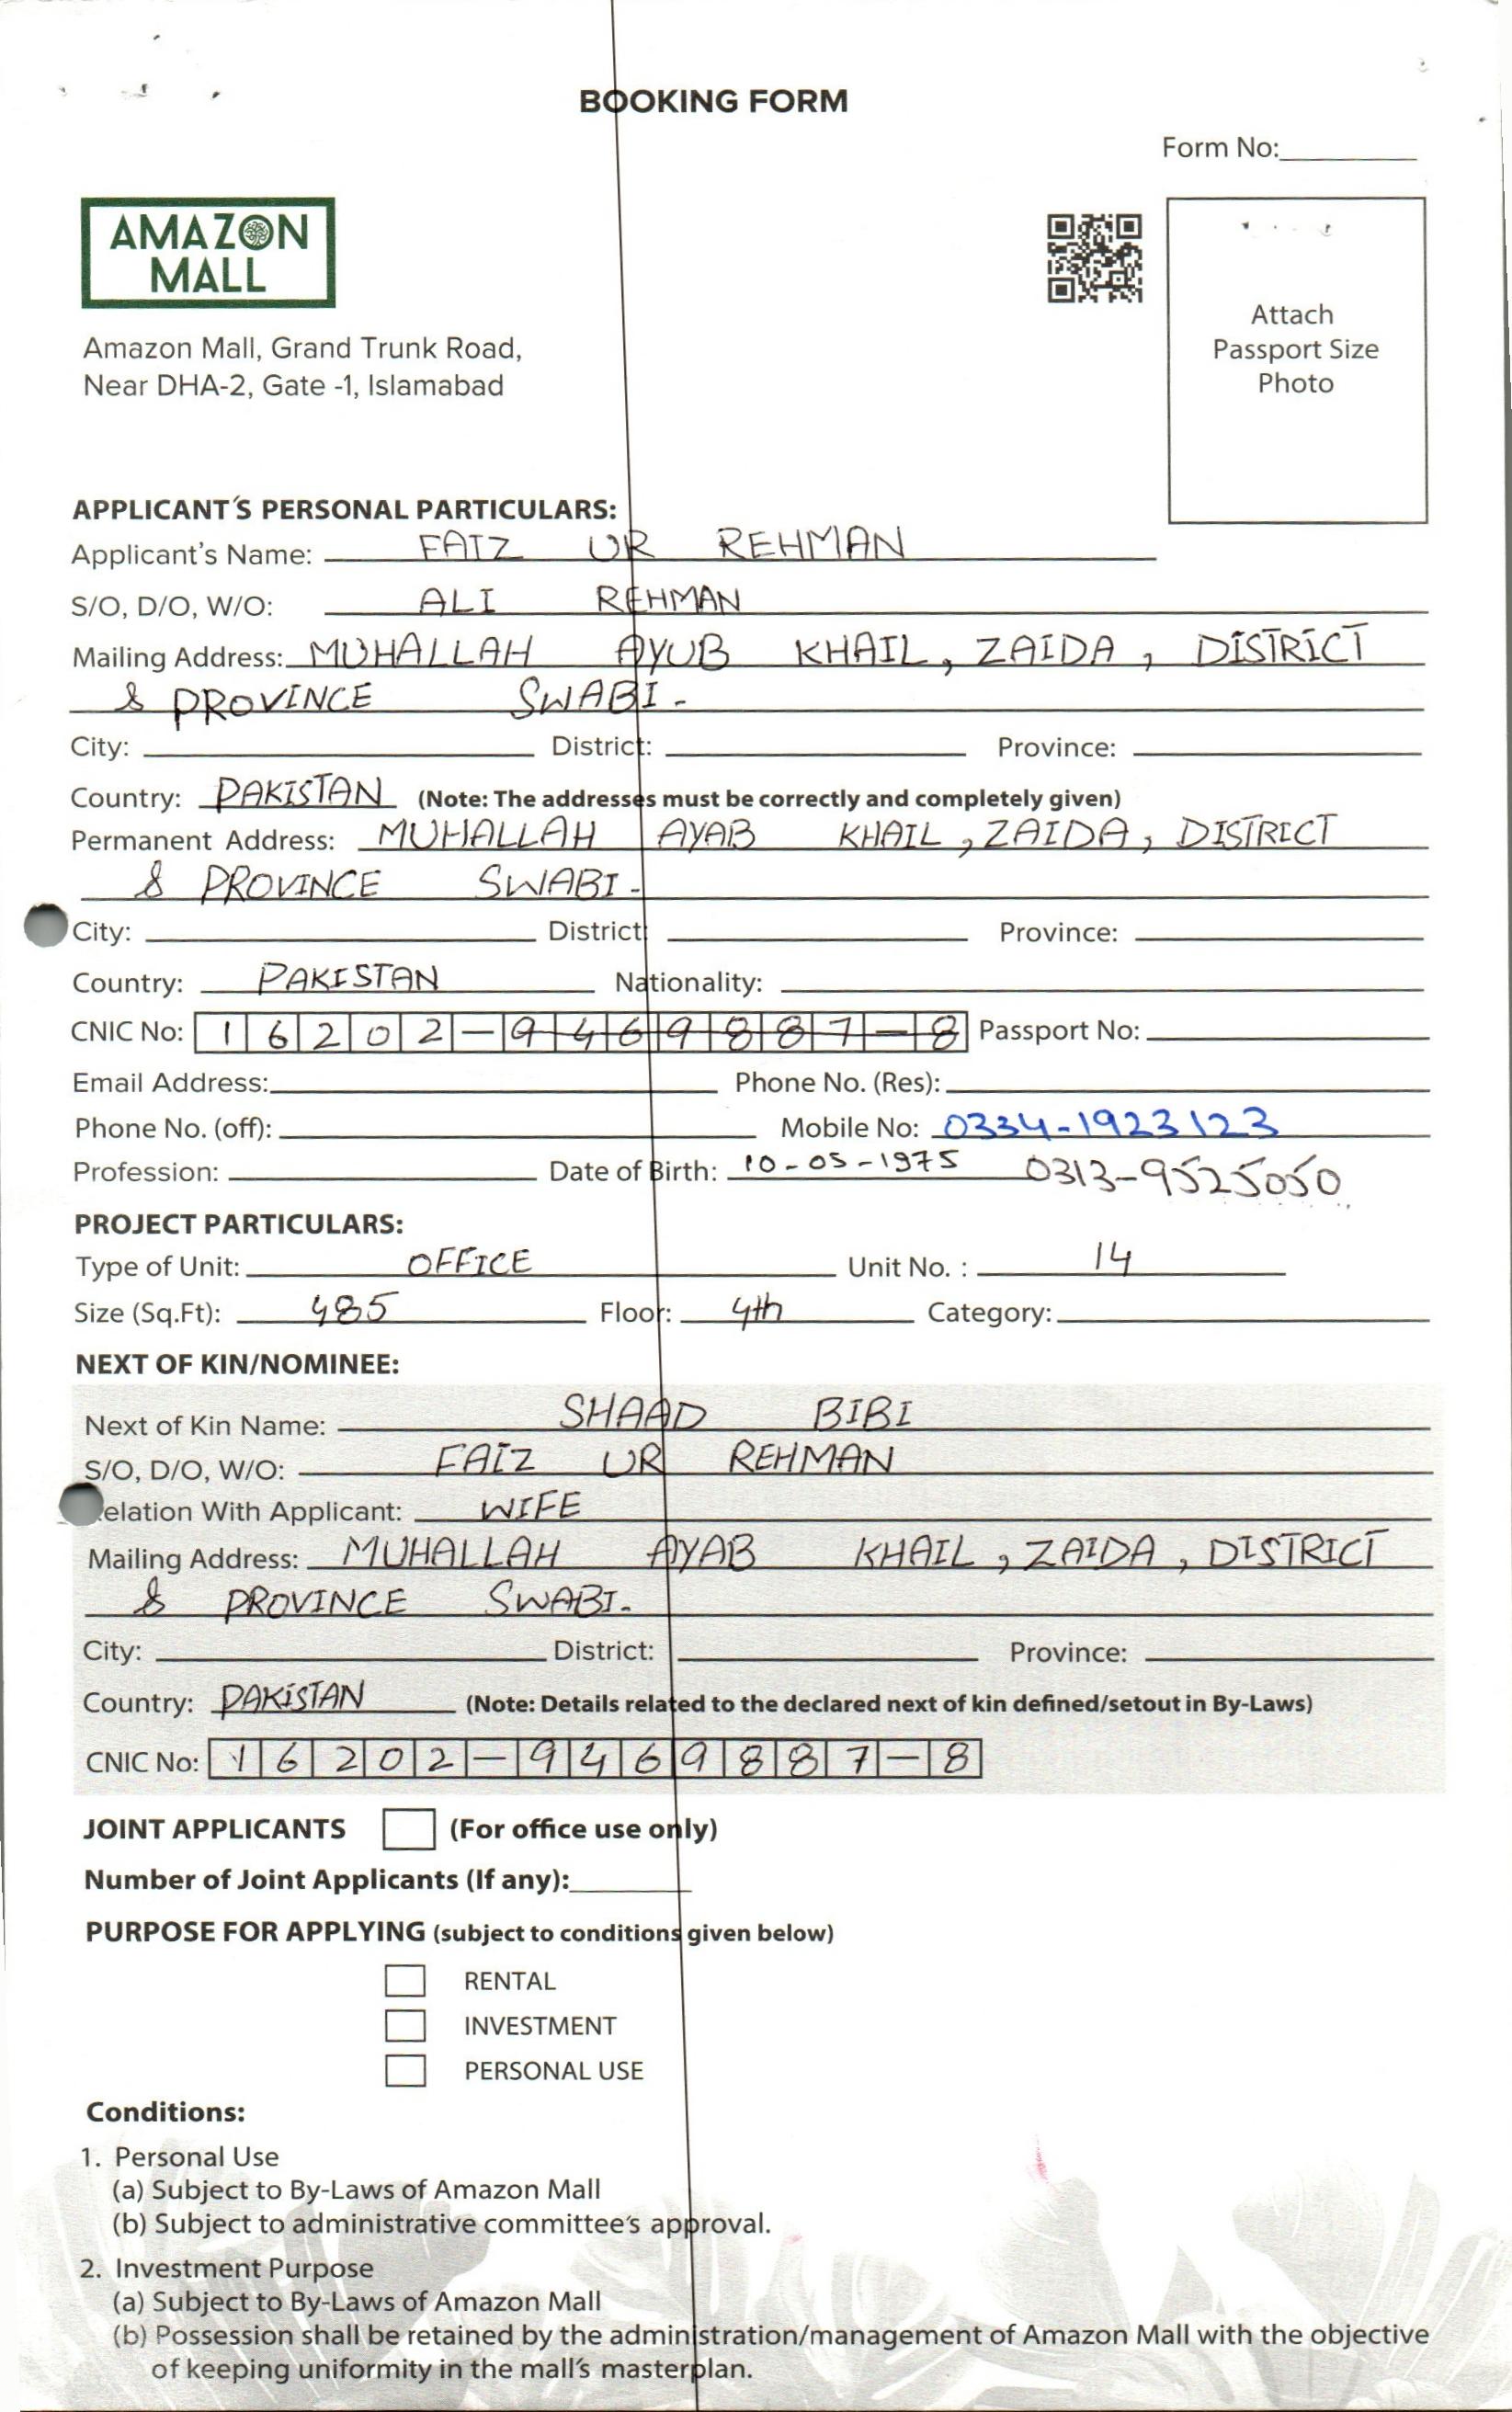 BOOKING FORM
Form No:
AMAZON
MALL
Attach
Passport Size
Photo
Amazon Mall, Grand Trunk Road,
Near DHA-2, Gate -1, Islamabad
APPLICANT'S PERSONAL PARTICULARS:
Applicant's Name: FAIZ UR REHMAN
S/O, D/O, W/O: ALI REHMAN
Mailing Address: MUHALLAH AYUB KHAIL, ZAIDA, DISTRICT
& PROVINCE SWABI.
City: District: Province:
Country: PAKISTAN (Note: The addresses must be correctly and completely given)
Permanent Address: MUHALLAH AYAB KHAIL, ZAIDA, DISTRICT
& PROVINCE SWABI.
City: District: Province:
Country: PAKISTAN Nationality:
CNIC No: 16202-9469887-8 Passport No:
Email Address: Phone No. (Res):
Phone No. (off): Mobile No: 0334-1923123
Profession: Date of Birth: 10-05-1975 0313-9525050
PROJECT PARTICULARS:
Type of Unit: OFFICE Unit No. : 14
Size (Sq.Ft): 485 Floor: 4th Category:
NEXT OF KIN/NOMINEE:
Next of Kin Name: SHAAD BIBI
S/O, D/O, W/O: FAIZ UR REHMAN
elation With Applicant: WIFE
Mailing Address: MUHALLAH AYAB KHAIL, ZAIDA, DISTRICT
& PROVINCE SWABI.
City: District: Province:
Country: PAKISTAN (Note: Details related to the declared next of kin defined/setout in By-Laws)
CNIC No: 16202-9469887-8
JOINT APPLICANTS (For office use only)
Number of Joint Applicants (If any):
PURPOSE FOR APPLYING (subject to conditions given below)
RENTAL
INVESTMENT
PERSONAL USE
Conditions:
1. Personal Use
(a) Subject to By-Laws of Amazon Mall
(b) Subject to administrative committee's approval.
2. Investment Purpose
(a) Subject to By-Laws of Amazon Mall
(b) Possession shall be retained by the administration/management of Amazon Mall with the objective
of keeping uniformity in the mall's masterplan.